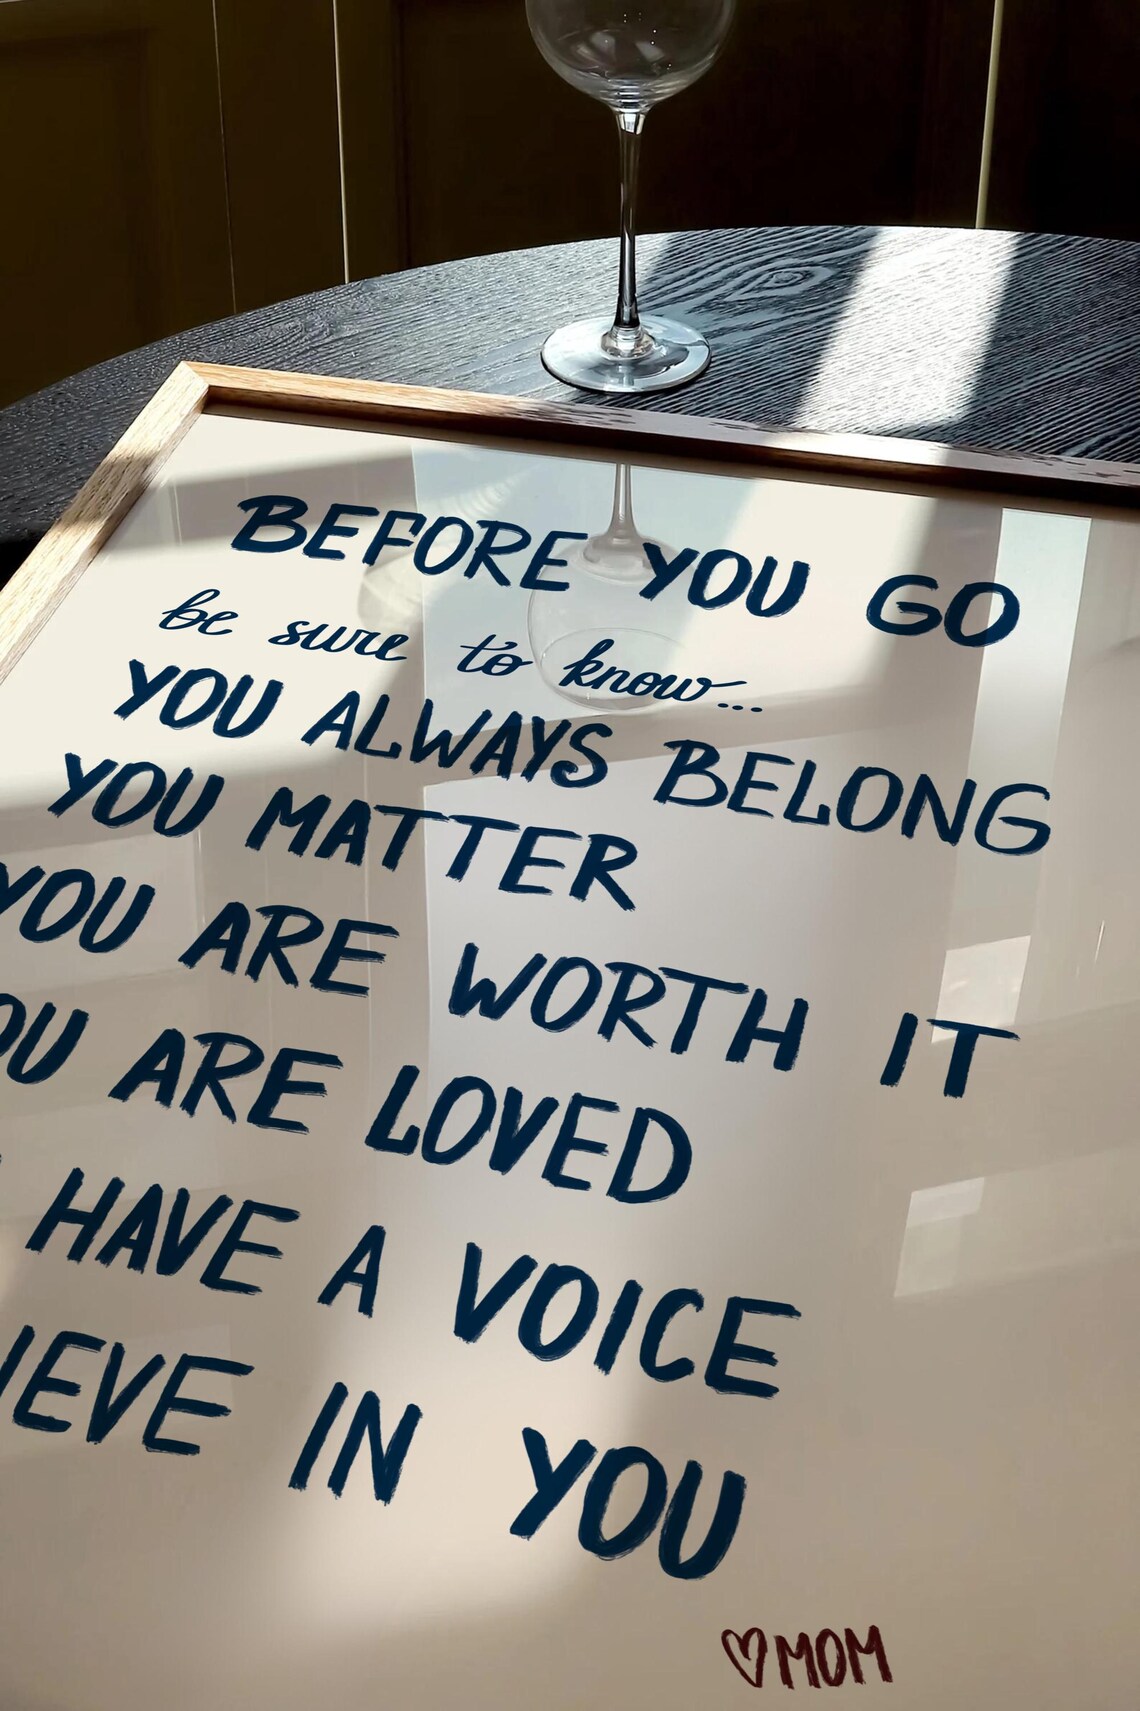 BEFORE YOU GO
be sure to know...
YOU ALWAYS BELONG
YOU MATTER
YOU ARE WORTH IT
OU ARE LOVED
HAVE A VOICE
IEVE IN YOU
♡MOM